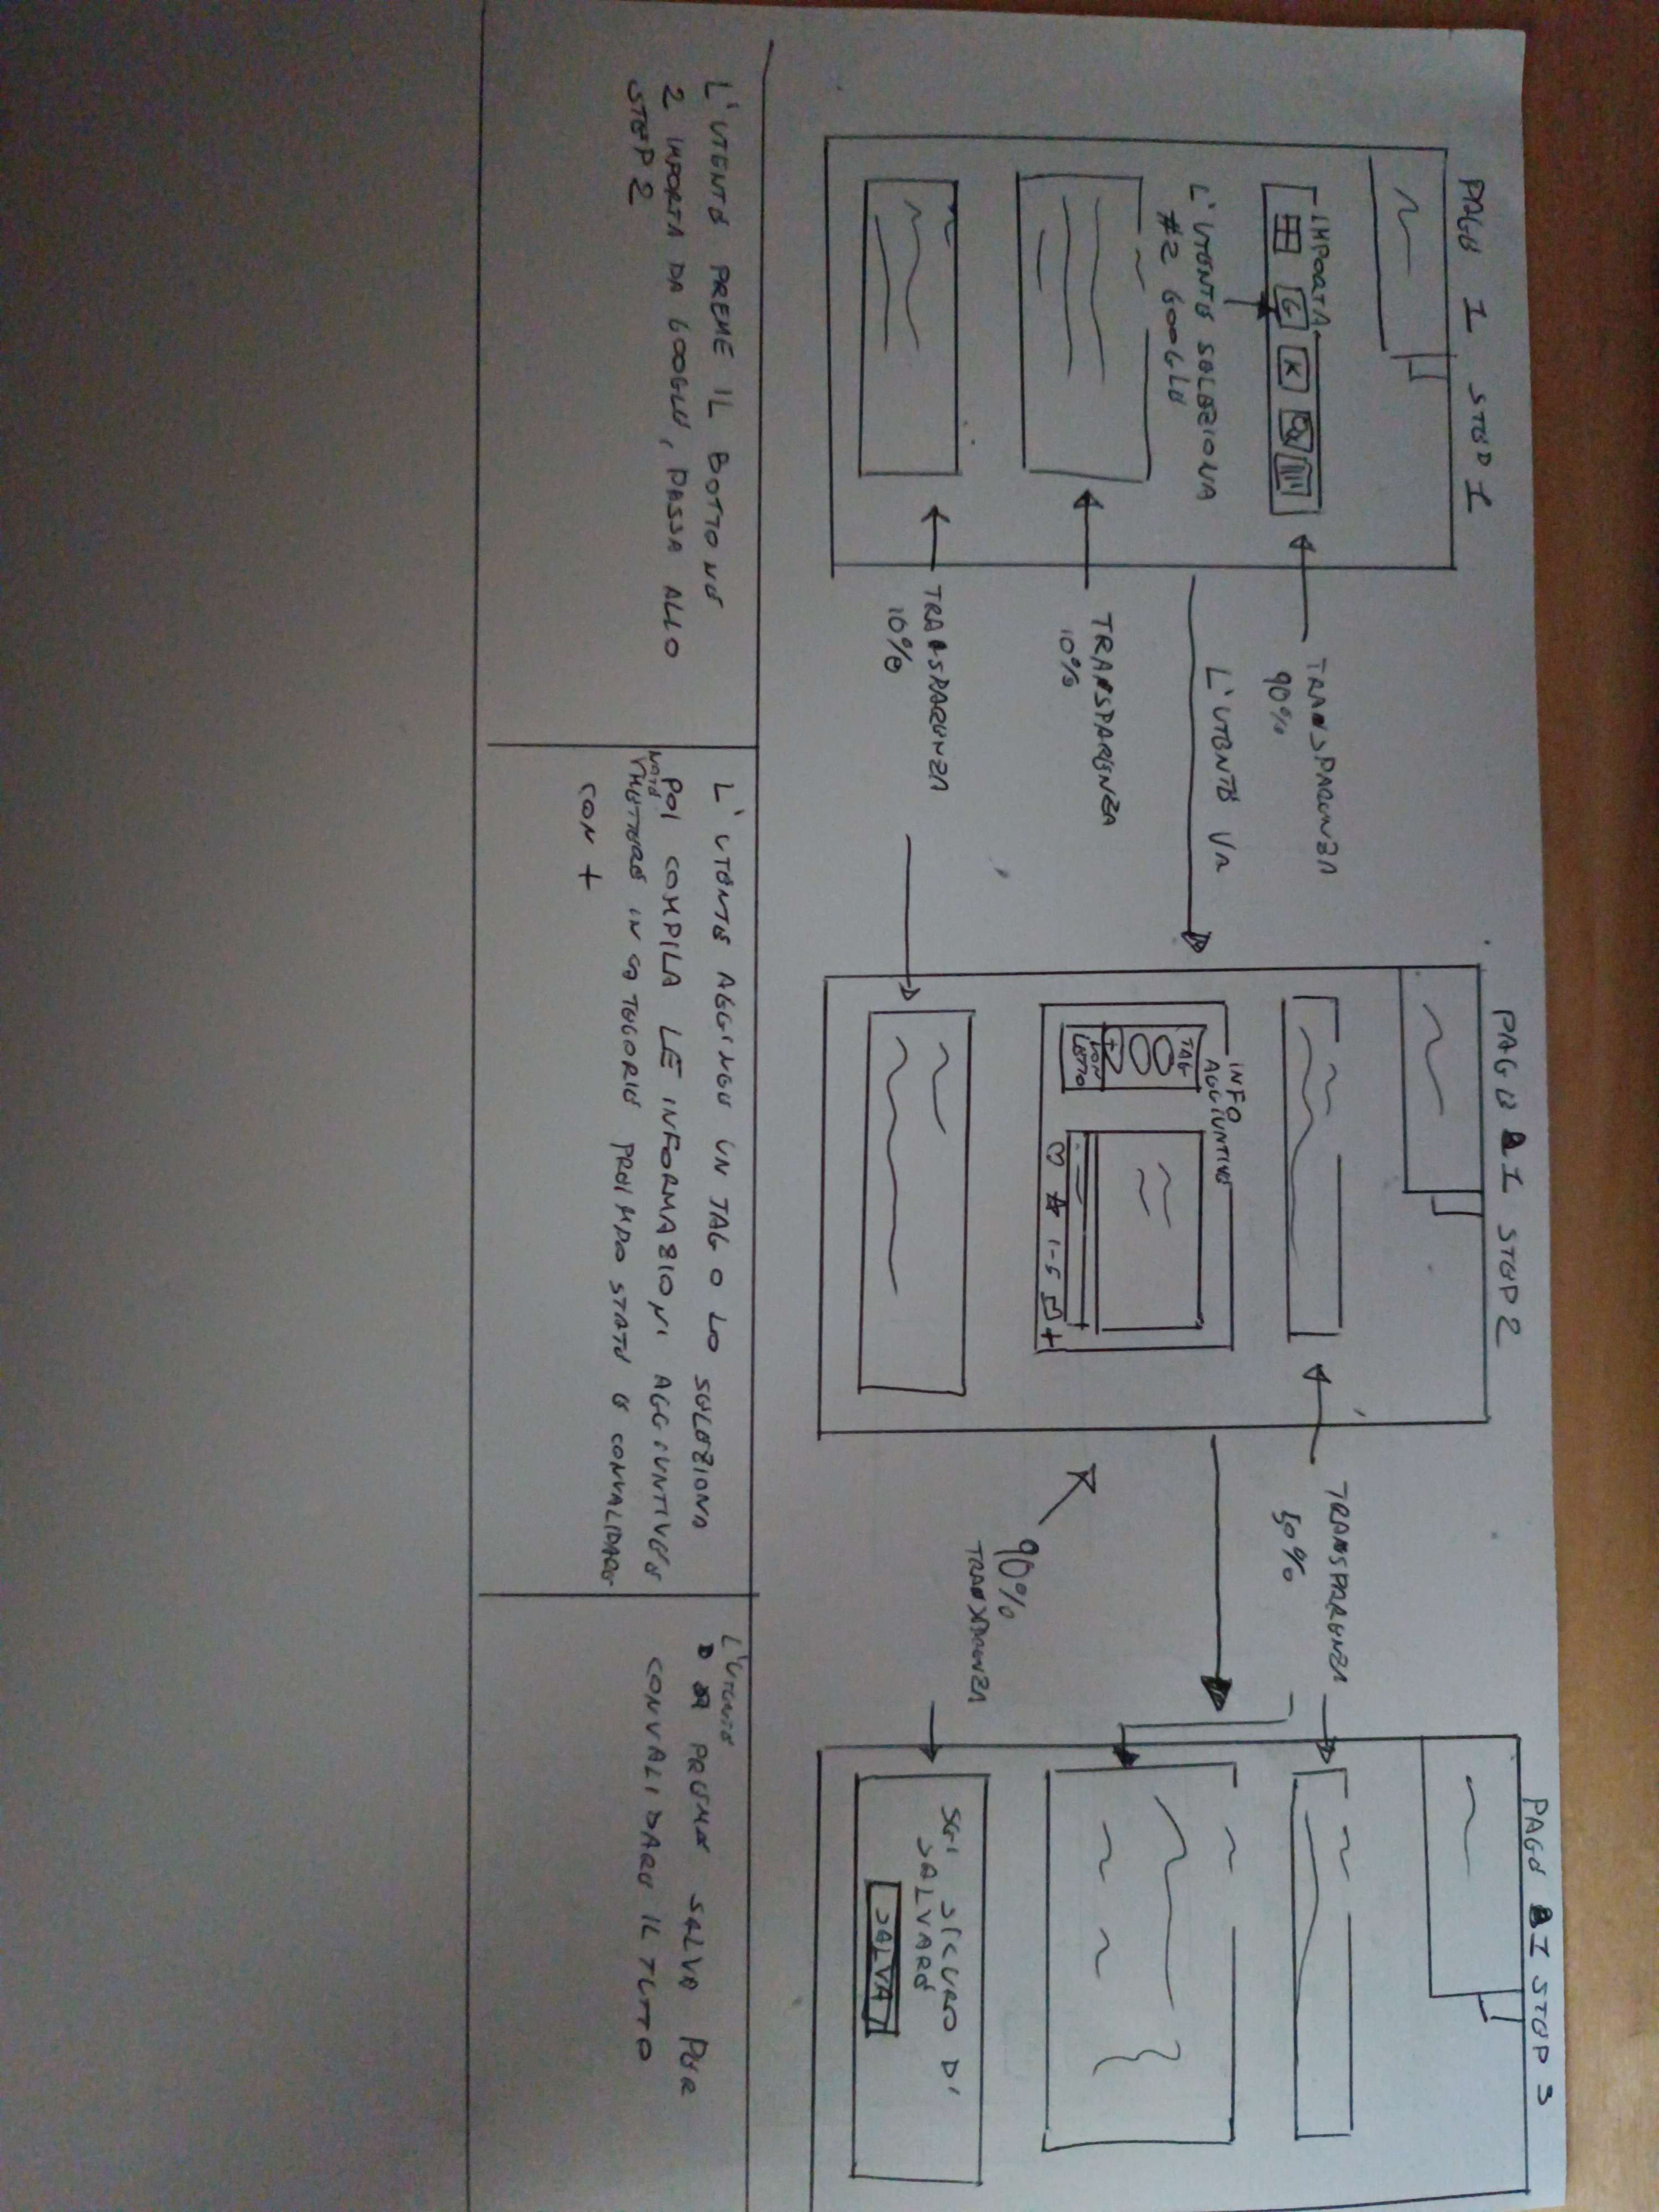 PAGE 1 STEP 1
IMPORTA
G K
L'UTENTE SELEZIONA
#2 GOOGLE
TRANSPARENZA
90%
L'UTENTE VA
TRANSPARENZA
10%
TRANSPARENZA
10%
PAGE 1 STEP 2
INFO
AGGIUNTIVE
TAG
+
NON
LETTO
1-5
+
TRANSPARENZA
50%
90%
PAGE 1 STEP 3
SEI SICURO DI
SALVARE
SALVA
L'UTENTE PREME IL BOTTONE
2 IMPORTA DA GOOGLE, PASSA ALLO
STEP 2
L'UTENTE AGGINGE UN TAG O LO SELEZIONA
POI COMPILA LE INFORMAZIONI AGGIUNTIVE
NOTE
METTERE IN
STATE E CONVALIDARE
CON +
L'UTENTE
PREME SALVA PER
CONVALIDARE IL TUTTO